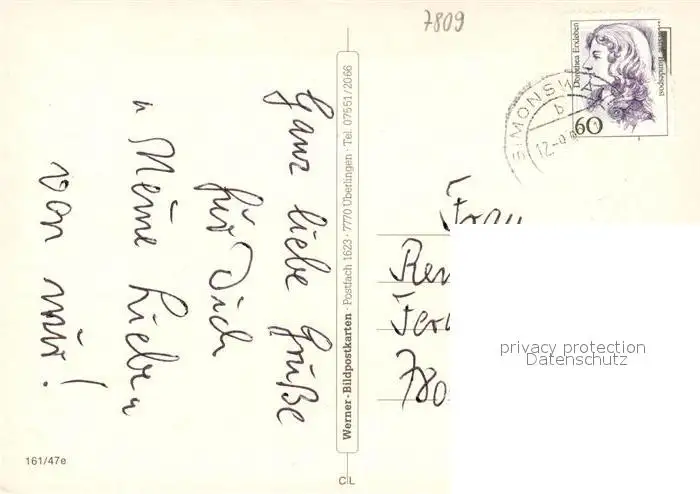 7809
Dorothea Erxleben
Deutsche Bundespost
60
SIMONSW
b
12.-9.
Ganz liebe Grüße
für Dich
u Meine Lieben
von mir!
Werner-Bildpostkarten · Postfach 1623 · 7770 Überlingen · Tel. 07551/2066
Frau
Ren
Fer
780
privacy protection
Datenschutz
161/47e
CL